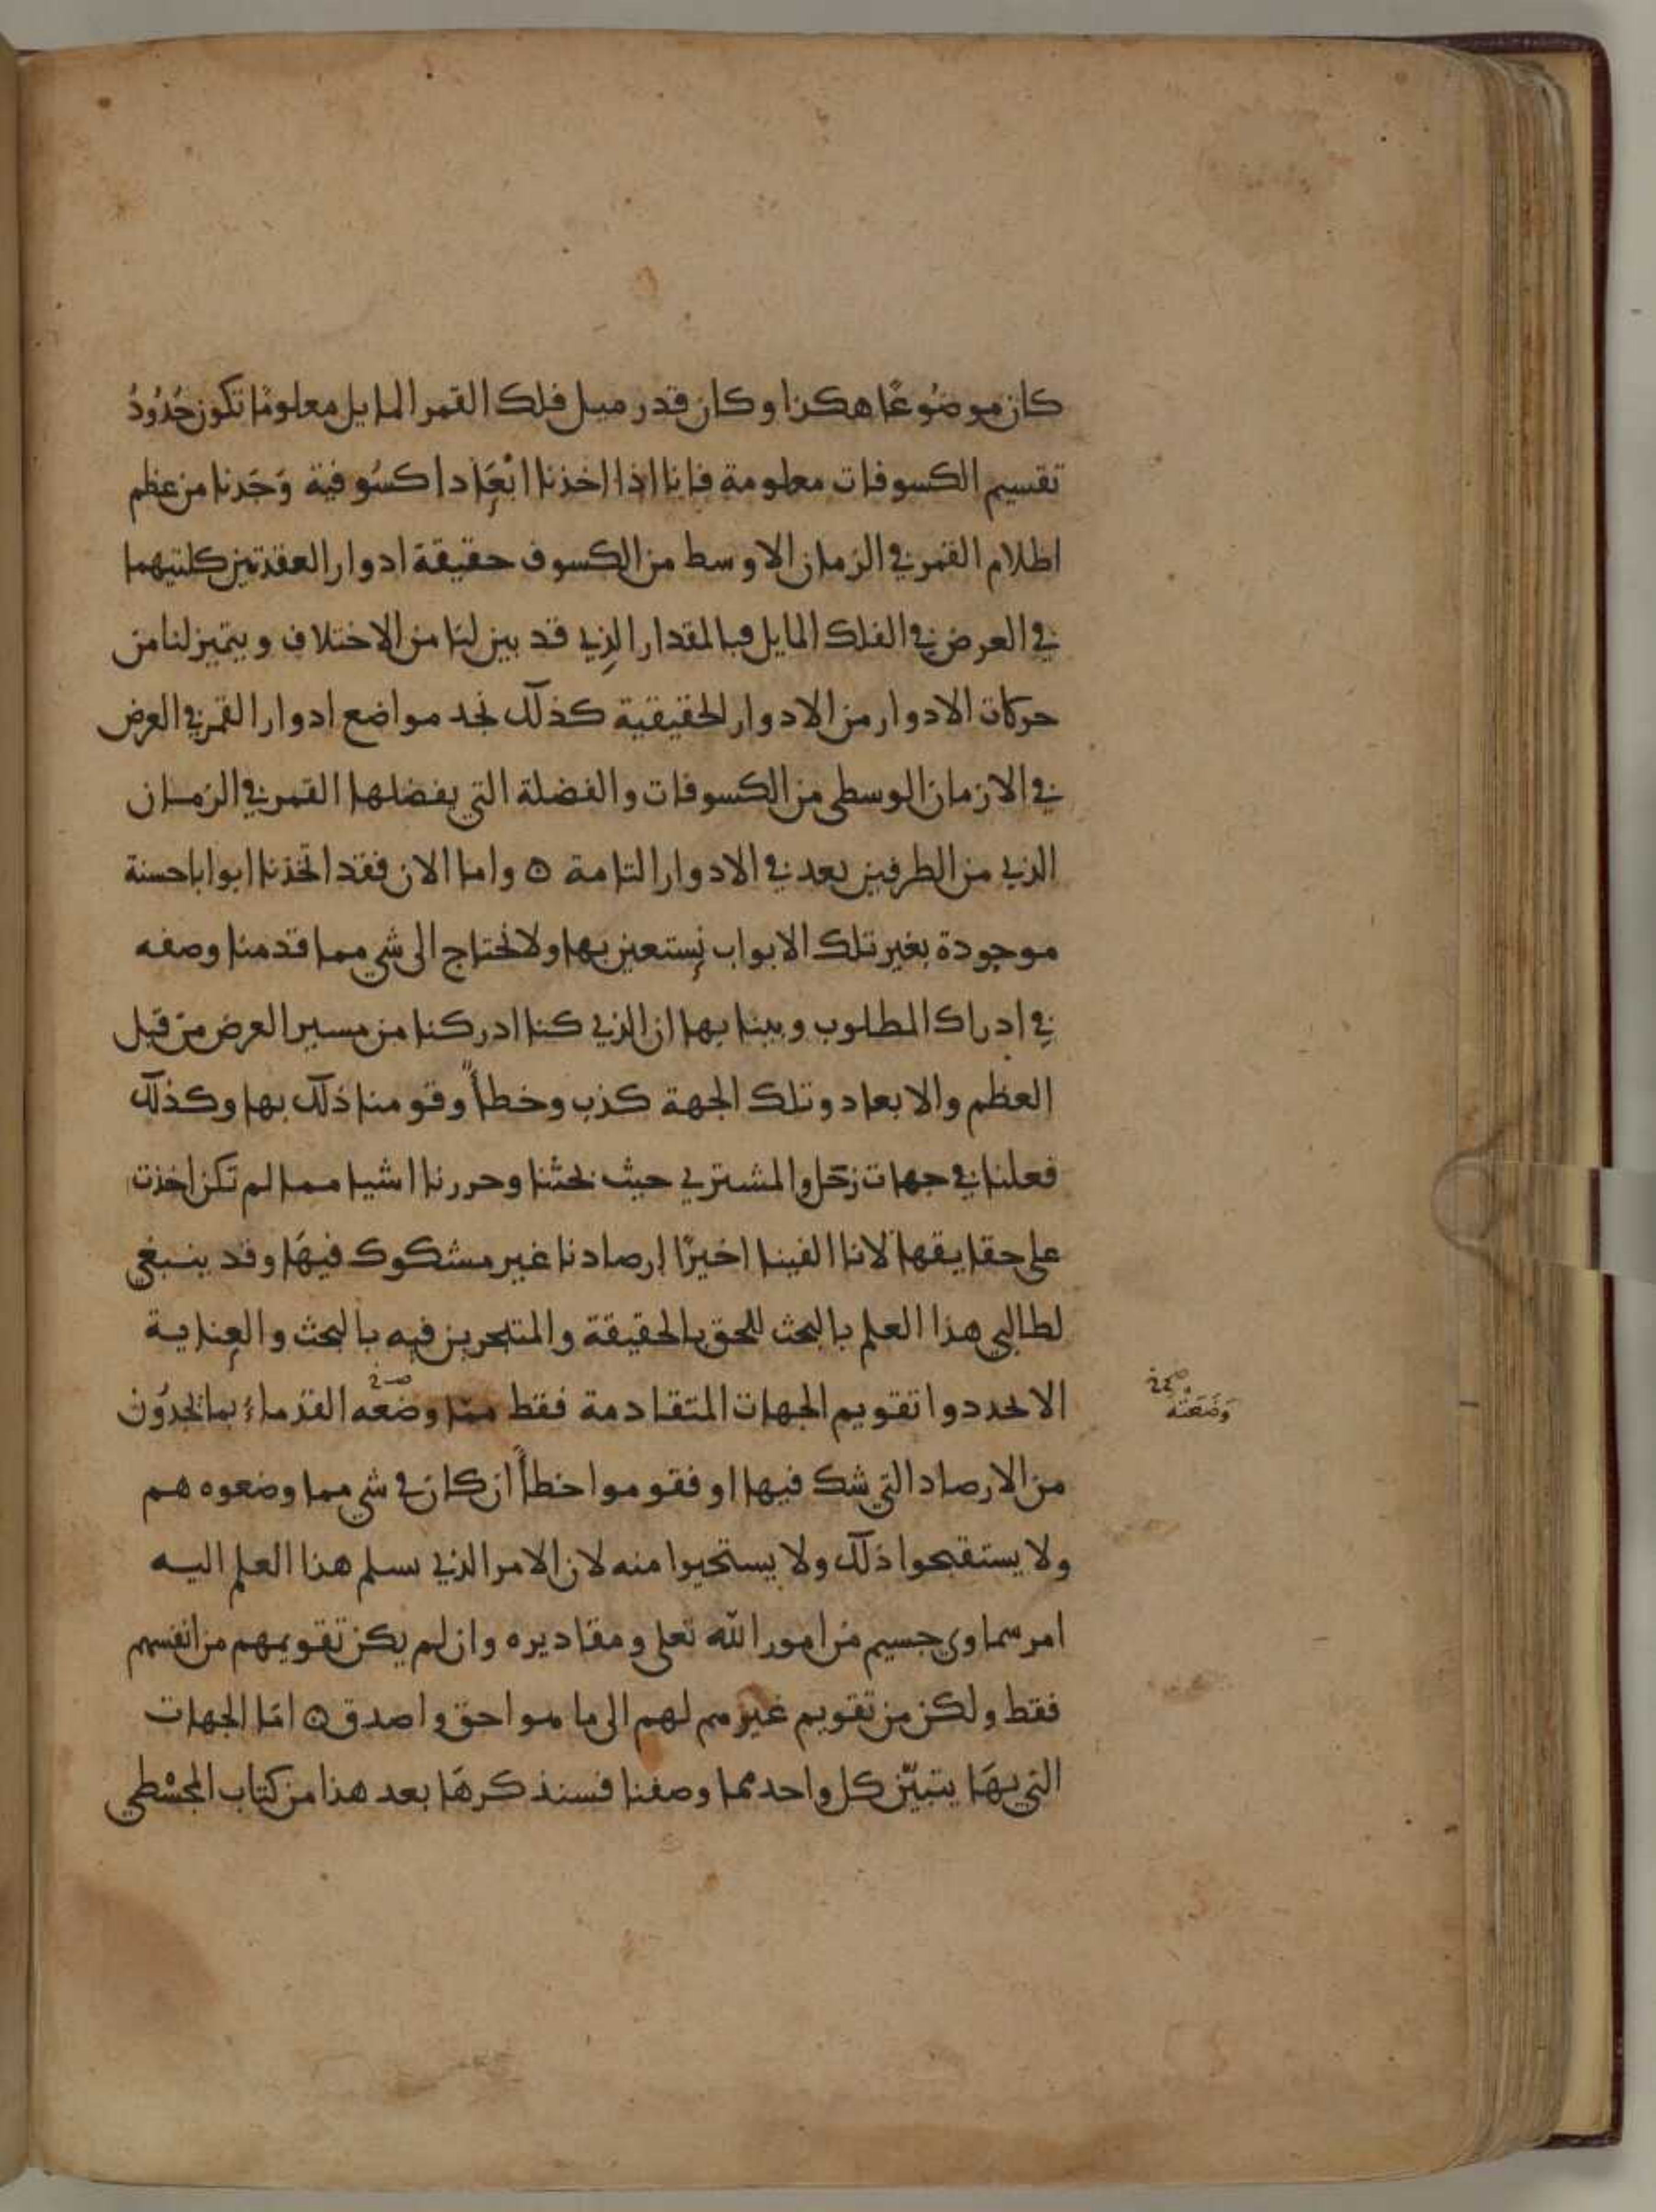 كان موضُوعًا هكذا وكان قدر ميل فلك القمر المايل معلومًا تكون حُدُودُ
تقسيم الكسوفات معلومة فانا اذا اخذنا ابْعَادا كسُوفية وَجَدنا من عظم
اظلام القمر في الزمان الاوسط من الكسوف حقيقة ادوار العقدتين كلتيهما
في العرض في الفلك المايل فبالمقدار الذي قد بين لنا من الاختلاف ويتميز لنا من
حركات الادوار من الادوار الحقيقية كذلك نجد مواضع ادوار القمر في العرض
في الازمان الوسطى من الكسوفات والفضلة التي يفضلها القمر في الزمان
الذي من الطرفين بعد في الادوار التامة ٥ واما الان فقد اتخذنا ابوابا حسنة
موجودة بغير تلك الابواب نستعين بها ولا نحتاج الى شي مما قدمنا وصفه
في ادراك المطلوب وبينا بها ان الذي كنا ادركنا من مسير العرض من قبل
العظم والابعاد وتلك الجهة كذب وخطأً وقومنا ذلك بها وكذلك
فعلنا في جهات زحل والمشتري حيث بحثنا وحررنا اشيا مما لم تكن اخذت
على حقايقها لانا الفينا اخيرًا ارصادنا غير مشكوك فيهَا وقد ينبغي
لطالبي هذا العلم بالبحث للحق بالحقيقة والمتحرين فيه بالبحث والعِناية
الا يحددوا تقويم الجهات المتقادمة فقط ممّا وضعه القدماءُ بما يجدُون
وَضَعَتْه
من الارصاد التي شك فيها او فقوموا خطأً ان كان في شي مما وضعوه هم
ولا يستقبحوا ذلك ولا يستحيوا منه لان الامر الذي سلم هذا العلم اليه
امر سماوي جسيم من امور الله تعلى ومقاديره وان لم يكن تقويمهم من انفسهم
فقط ولكن من تقويم غيرهم لهم الى ما هو احق واصدق ٥ امّا الجهات
التي بهَا يتبيّن كل واحد مما وصفنا فسنذكرهَا بعد هذا من كتاب المجسْطي